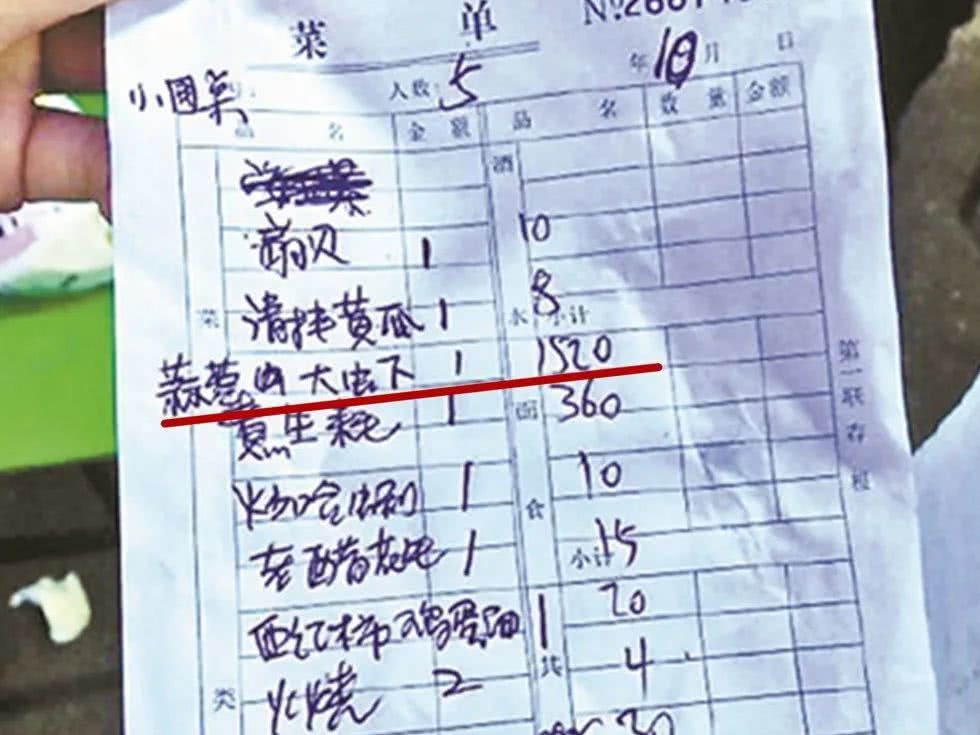 菜 单
小圆桌 人数: 5 年 10 月 日
品 名 金 额 品 名 数 量 金额
酒
扇贝 1 10
菜 清拌黄瓜 1 8 水 小计
蒜葱 大虫下 1 1520
煮生耗 1 面 360
炒哈蜊 1 10 食
老醋花生 1 小计 15
西红柿鸡蛋 1 20
共 4
类 火烧 2
30
第一联存根